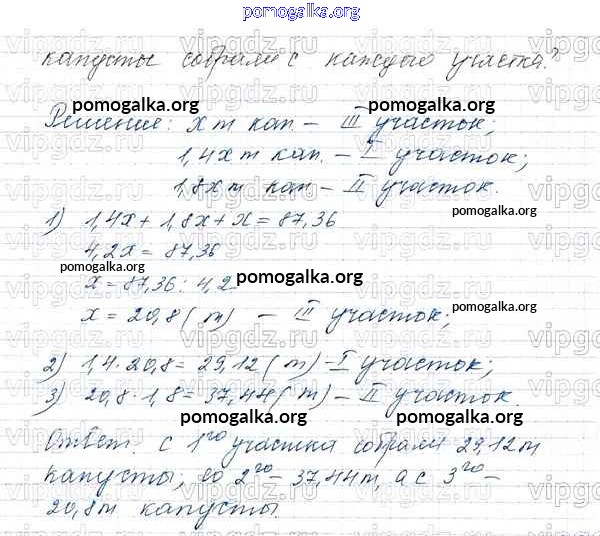 pomogalka.org
капусты собрали с каждого участка?
pomogalka.org
Решение: x т кап – III участок;
1,4x т кап. – I участок;
1,8x т кап – II участок.
1) 1,4x + 1,8x + x = 87,36
4,2x = 87,36
pomogalka.org
x = 87,36 : 4,2
pomogalka.org
x = 20,8 (т) – III участок;
pomogalka.org
2) 1,4 · 20,8 = 29,12 (т) – I участок;
3) 20,8 · 1,8 = 37,44 (т) – II участок.
pomogalka.org
pomogalka.org
Ответ. с 1го участка собрали 29,12 т
капусты, со 2го – 37,44 т, а с 3го –
20,8 т капусты.
vipgdz.ru